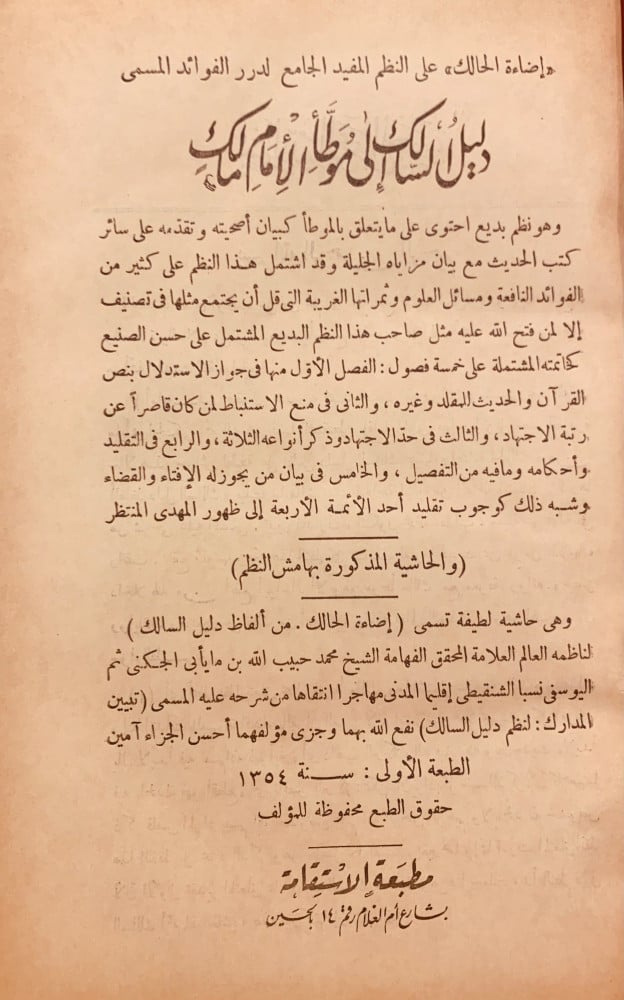 «إضاءة الحالك» على النظم المفيد الجامع لدرر الفوائد المسمى
دليل السالك إلى موطأ الإمام مالك
وهو نظم بديع احتوى على ما يتعلق بالموطأ كبيان أصحيته وتقدّمه على سائر
كتب الحديث مع بيان مزاياه الجليلة وقد اشتمل هذا النظم على كثير من
الفوائد النافعة ومسائل العلوم وثمراتها الغريبة التى قل أن يجتمع مثلها فى تصنيف
إلا لمن فتح الله عليه مثل صاحب هذا النظم البديع المشتمل على حسن الصنيع
كخاتمته المشتملة على خمسة فصول : الفصل الأوّل منها فى جواز الاستدلال بنص
القرآن والحديث للمقلد وغيره ، والثانى فى منع الاستنباط لمن كان قاصراً عن
رتبة الاجتهاد ، والثالث فى حدّ الاجتهاد وذكر أنواعه الثلاثة ، والرابع فى التقليد
وأحكامه ومافيه من التفصيل ، والخامس فى بيان من يجوز له الإفتاء والقضاء
وشبه ذلك كوجوب تقليد أحد الأئمة الأربعة إلى ظهور المهدى المنتظر
(والحاشية المذكورة بهامش النظم)
وهى حاشية لطيفة تسمى ( إضاءة الحالك . من ألفاظ دليل السالك )
لناظمه العالم العلامة المحقق الفهامة الشيخ محمد حبيب الله بن مايأبى الجكنى ثم
اليوسفى نسبا الشنقيطى إقليما المدنى مهاجرا انتقاها من شرحه عليه المسمى (تبيين
المدارك : لنظم دليل السالك) نفع الله بهما وجزى مؤلفهما أحسن الجزاء آمين
الطبعة الأولى : سنة ١٣٥٤
حقوق الطبع محفوظة للمؤلف
مطبعة الاستقامة
بشارع أم الغلام رقم ١٤ بالحسين